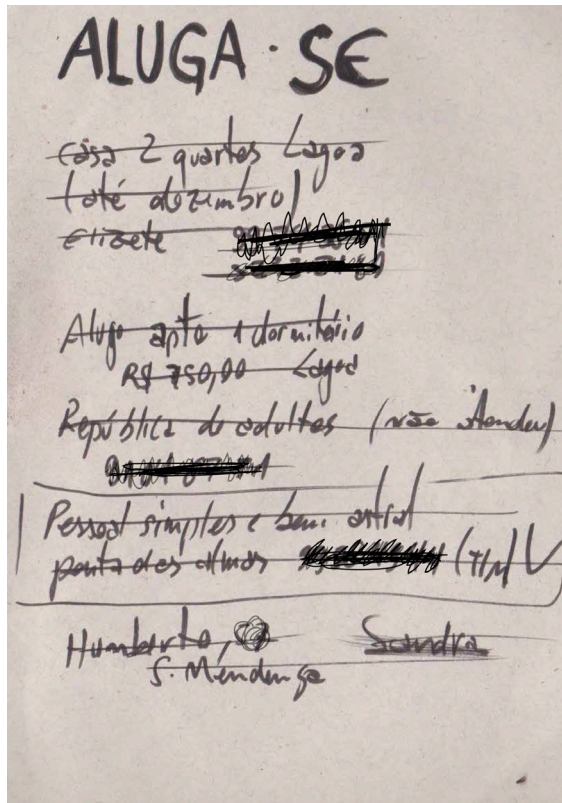 ALUGA-SE
Casa 2 quartos Lagoa
(até dezembro)
Elizete
Alugo apto 1 dormitório
R$ 750,00 Lagoa
República de adultos (não atendeu)
Pessoal simples e bem astral
ponta das almas (TIM) V
Humberto,
S. Mendonça
Sandra